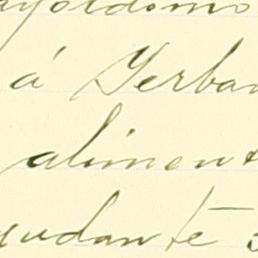 ayordomo
á Yerba
aliment
yudante